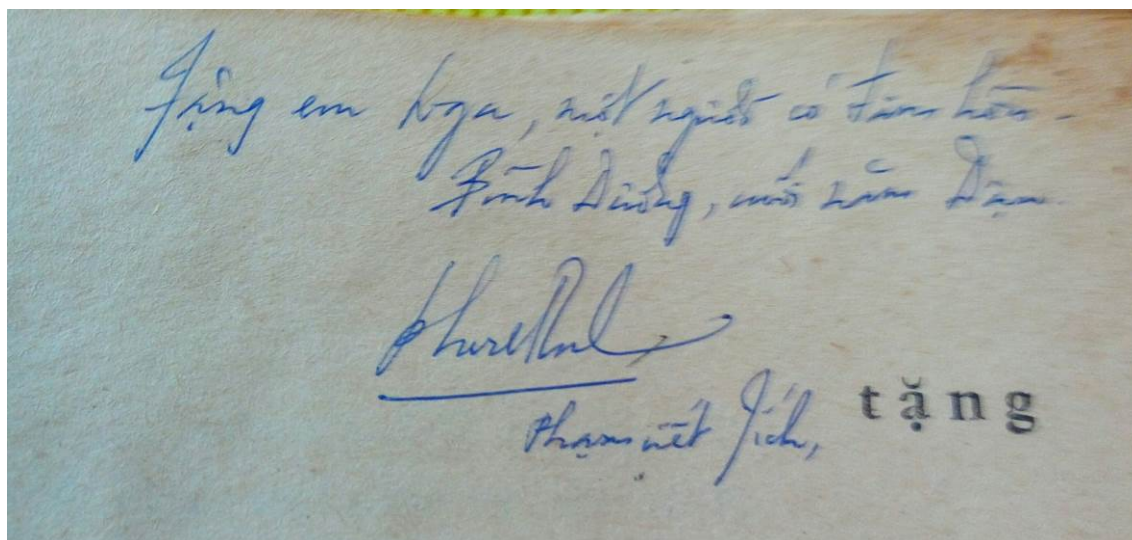 Tặng em Nga, một người có tâm hồn.
Bình Dương, cuối năm Dần.
Phạm viết Tích,
tặng